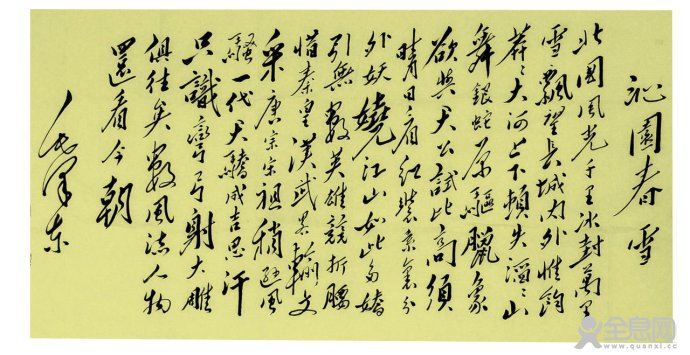 沁園春雪
北國風光千里冰封萬里
雪飄望長城内外惟餘
莽〻大河上下頓失滔〻山
舞銀蛇原驅臘象
欲與天公試比高須
晴日看红裝素裹分
外妖嬈江山如此多嬌
引無數英雄競折腰
惜秦皇漢武畧輸文
采唐宗宋祖稍遜風
騷一代天驕成吉思汗
只識彎弓射大雕
俱往矣數風流人物
還看今朝
毛澤东
全息网
www.quanxi.cc